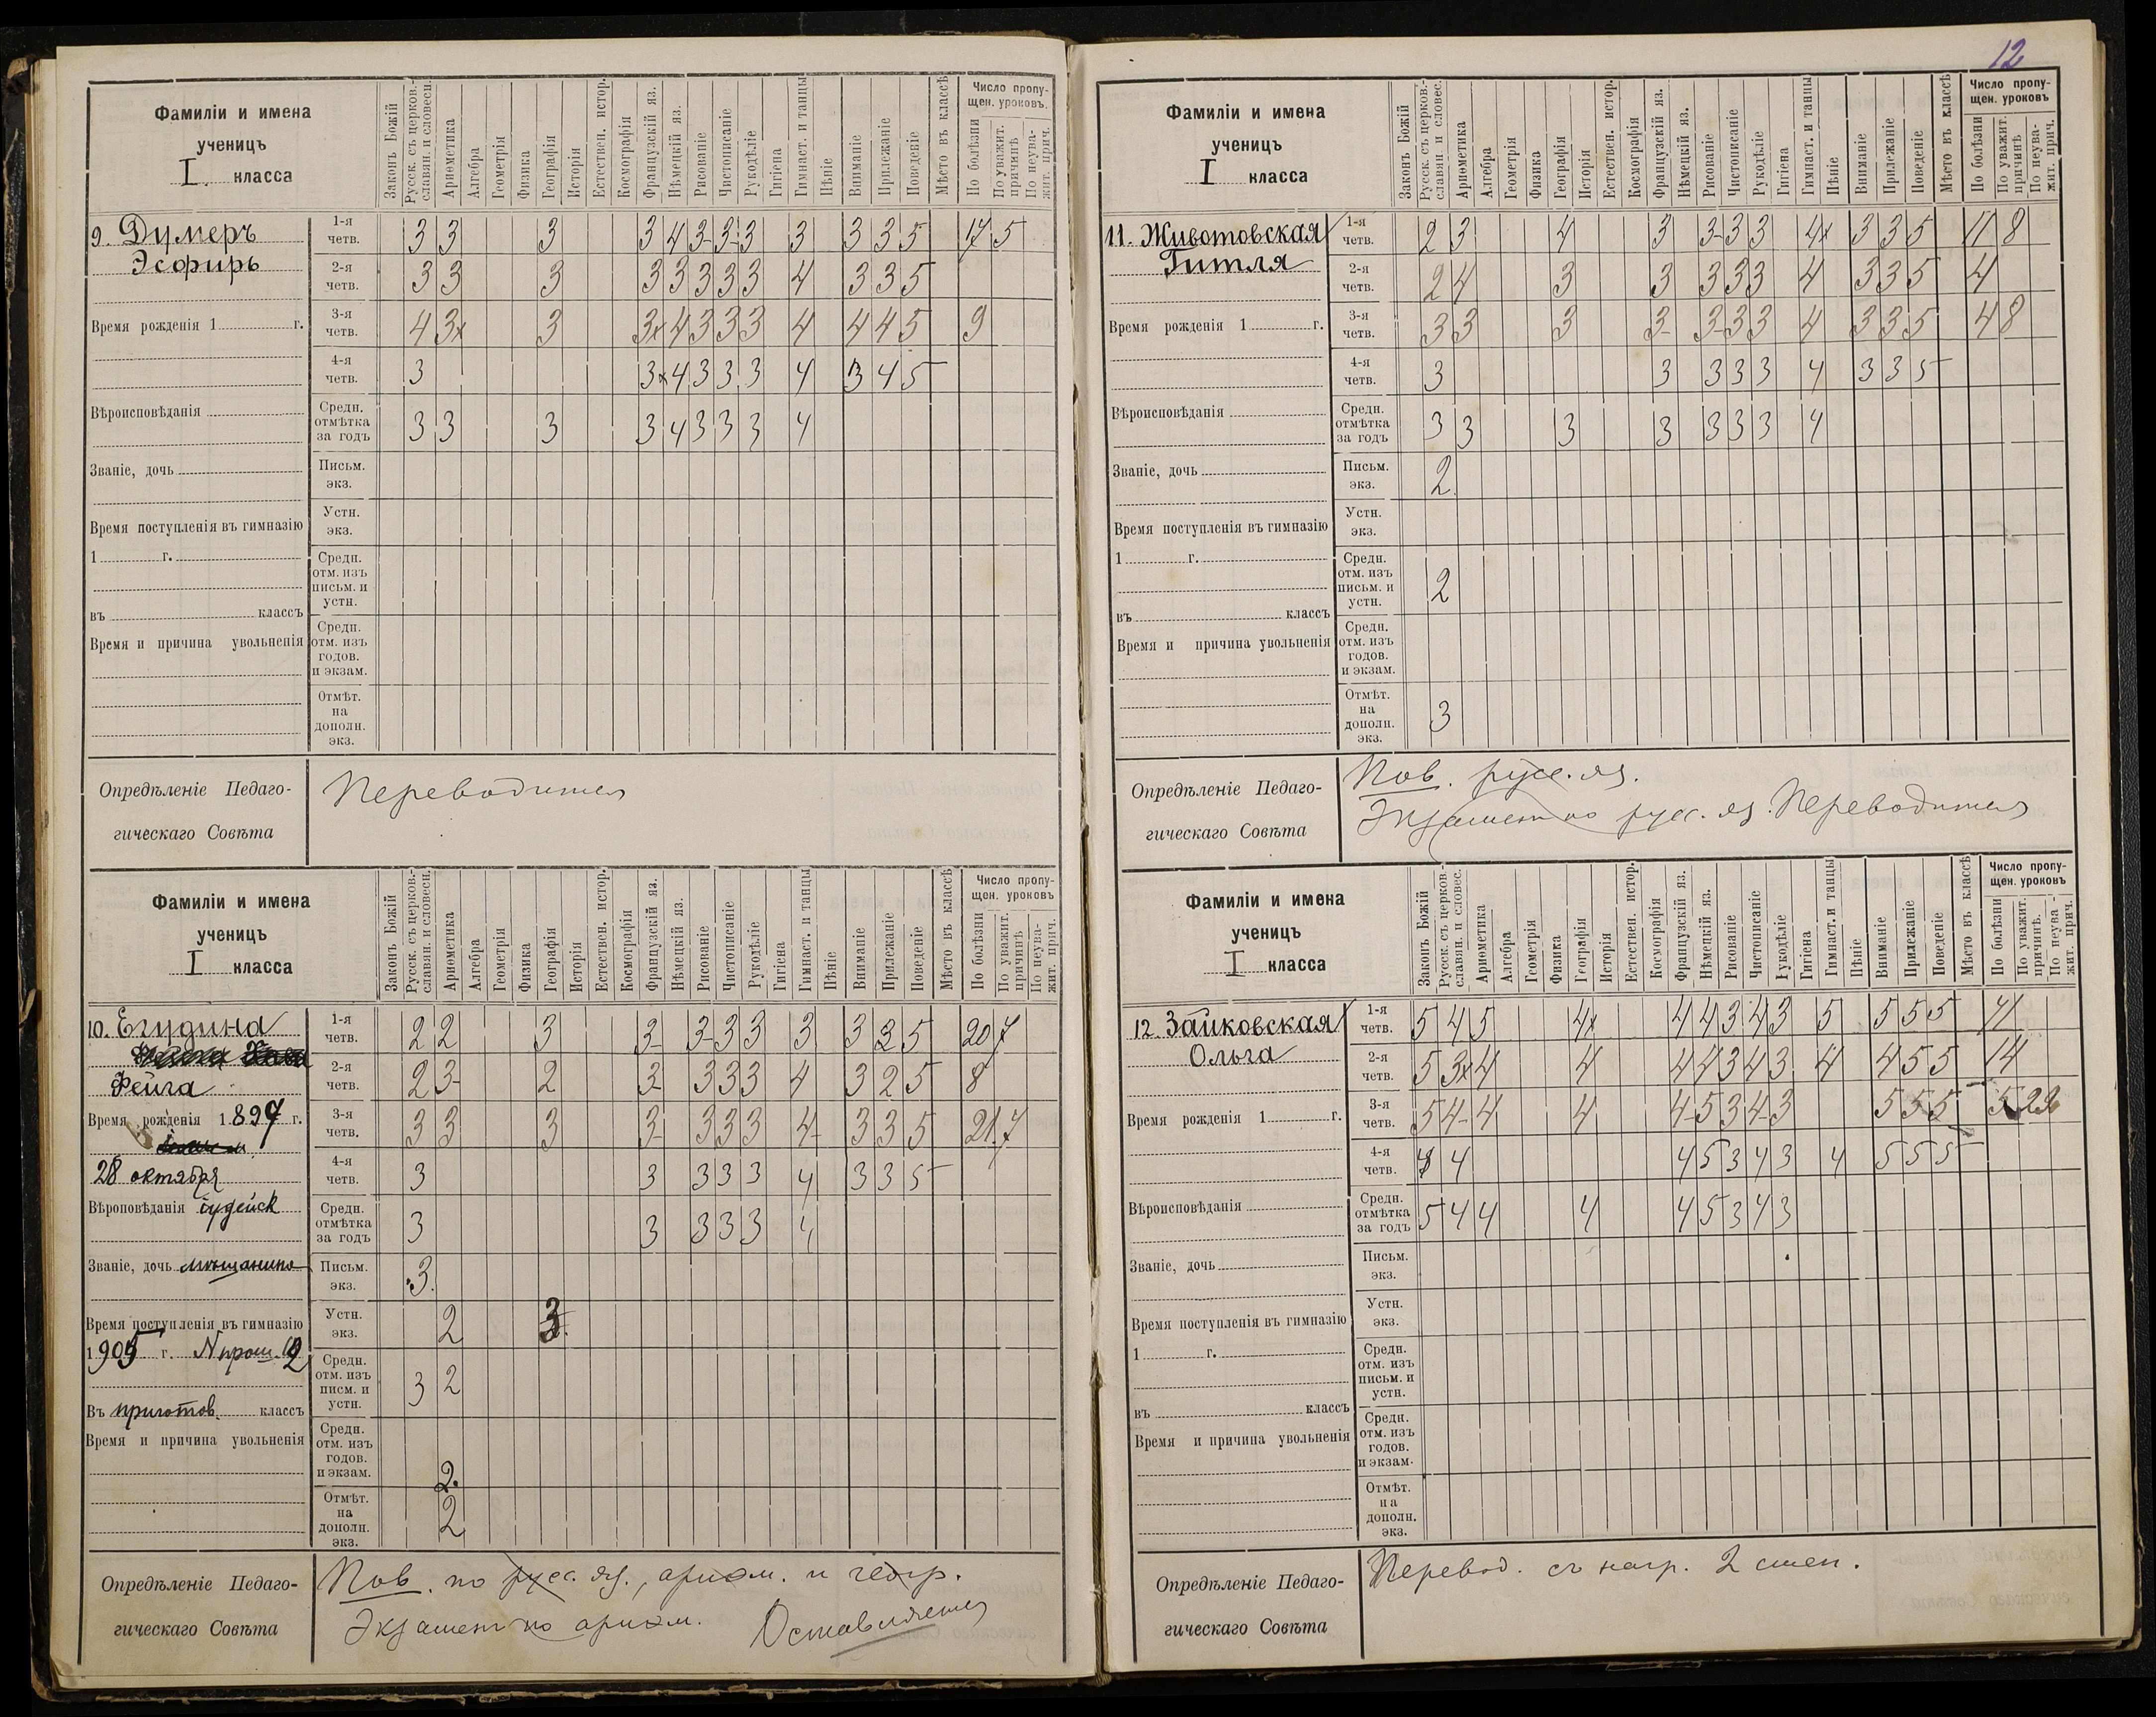 12
Фамиліи и имена
ученицъ
I. класса
Законъ Божій
Русск. съ церков.-
славян. и словесн.
Ариѳметика
Алгебра
Геометрія
Физика
Географія
Исторія
Естествен. истор.
Космографія
Французскій яз.
Нѣмецкій яз.
Рисованіе
Чистописаніе
Рукодѣліе
Гигіена
Гимнаст. и танцы
Пѣніе
Вниманіе
Прилежаніе
Поведеніе
Мѣсто въ классѣ
Число пропу-
щен. уроковъ.
По болѣзни
По уважит.
причинѣ
По неува-
жит. прич.
9. Думеръ
Эсфирь
Время рожденія 1 г.
Вѣроисповѣданія
Званіе, дочь
Время поступленія въ гимназію
1 г.
въ классъ
Время и причина увольненія
1-я четв. 3 3 3 3 4 3- 3- 3 3 3 3 5 17 5
2-я четв. 3 3 3 3 3 3 3 3 4 3 3 5
3-я четв. 4 3x 3 3x 4 3 3 3 4 4 4 5 9
4-я четв. 3 3x 4 3 3 3 4 3 4 5
Средн. отмѣтка за годъ 3 3 3 3 4 3 3 3 4
Письм. экз.
Устн. экз.
Средн. отм. изъ письм. и устн.
Средн. отм. изъ годов. и экзам.
Отмѣт. на дополн. экз.
Опредѣленіе Педаго-
гическаго Совѣта
Переводится
Фамиліи и имена
ученицъ
I класса
Законъ Божій
Русск. съ церков.-
славян. и словесн.
Ариѳметика
Алгебра
Геометрія
Физика
Географія
Исторія
Естествен. истор.
Космографія
Французскій яз.
Нѣмецкій яз.
Рисованіе
Чистописаніе
Рукодѣліе
Гигіена
Гимнаст. и танцы
Пѣніе
Вниманіе
Прилежаніе
Поведеніе
Мѣсто въ классѣ
Число пропу-
щен. уроковъ
По болѣзни
По уважит.
причинѣ
По неува-
жит. прич.
10. Егудина
Фейга
Время рожденія 1897 г.
28 октября
Вѣроповѣданія іудейск
Званіе, дочь мѣщанина
Время поступленія въ гимназію
1905 г. N прош. 12
Въ приготов. классъ
Время и причина увольненія
1-я четв. 2 2 3 3- 3- 3 3 3 3 3 5 20 7
2-я четв. 2 3- 2 3- 3 3 3 4 3 2 5 8
3-я четв. 3 3 3 3- 3 3 3 4- 3 3 5 21 7
4-я четв. 3 3 3 3 3 4 3 3 5
Средн. отмѣтка за годъ 3 3 3 3 3 4
Письм. экз. 3.
Устн. экз. 2 3.
Средн. отм. изъ писм. и устн. 3 2
Средн. отм. изъ годов. и экзам. 2.
Отмѣт. на дополн. экз. 2
Опредѣленіе Педаго-
гическаго Совѣта
Пов. по русс. яз., ариѳм. и геогр.
Экзаменъ по ариѳм. Оставляется
Фамиліи и имена
ученицъ
I класса
Законъ Божій
Русск. съ церков.-
славян. и словес.
Ариѳметика
Алгебра
Геометрія
Физика
Географія
Исторія
Естествен. истор.
Космографія
Французскій яз.
Нѣмецкій яз.
Рисованіе
Чистописаніе
Рукодѣліе
Гигіена
Гимнаст. и танцы
Пѣніе
Вниманіе
Прилежаніе
Поведеніе
Мѣсто въ классѣ
Число пропу-
щен. уроковъ
По болѣзни
По уважит.
причинѣ
По неува-
жит. прич.
11. Животовская
Гитля
Время рожденія 1 г.
Вѣроисповѣданія
Званіе, дочь
Время поступленія въ гимназію
1 г.
въ классъ
Время и причина увольненія
1-я четв. 2 3 4 3 3- 3 3 4x 3 3 5 11 8
2-я четв. 2 4 3 3 3 3 3 4 3 3 5 4
3-я четв. 3 3 3 3- 3- 3 3 4 3 3 5 4 8
4-я четв. 3 3 3 3 3 4 3 3 5
Средн. отмѣтка за годъ 3 3 3 3 3 3 3 4
Письм. экз. 2.
Устн. экз.
Средн. отм. изъ письм. и устн. 2
Средн. отм. изъ годов. и экзам.
Отмѣт. на дополн. экз. 3
Опредѣленіе Педаго-
гическаго Совѣта
Пов. русс. яз.
Экзаменъ по русс. яз. Переводится
Фамиліи и имена
ученицъ
I класса
Законъ Божій
Русск. съ церков.-
славян. и словес.
Ариѳметика
Алгебра
Геометрія
Физика
Географія
Исторія
Естествен. истор.
Космографія
Французскій яз.
Нѣмецкій яз.
Рисованіе
Чистописаніе
Рукодѣліе
Гигіена
Гимнаст. и танцы
Пѣніе
Вниманіе
Прилежаніе
Поведеніе
Мѣсто въ классѣ
Число пропу-
щен. уроковъ
По болѣзни
По уважит.
причинѣ.
По неува-
жит. прич.
12. Зайковская
Ольга
Время рожденія 1 г.
Вѣроисповѣданія
Званіе, дочь
Время поступленія въ гимназію
1 г.
въ классъ
Время и причина увольненія
1-я четв. 5 4 5 4x 4 4 3 4 3 5 5 5 5 11
2-я четв. 5 3x 4 4 4 4 3 4 3 4 4 5 5 14
3-я четв. 5 4- 4 4 4- 5 3 4- 3 5 5 5 5 22
4-я четв. 4 4 5 3 4 3 4 5 5 5
Средн. отмѣтка за годъ 5 4 4 4 4 5 3 4 3
Письм. экз.
Устн. экз.
Средн. отм. изъ письм. и устн.
Средн. отм. изъ годов. и экзам.
Отмѣт. на дополн. экз.
Опредѣленіе Педаго-
гическаго Совѣта
Перевод. съ нагр. 2 степ.